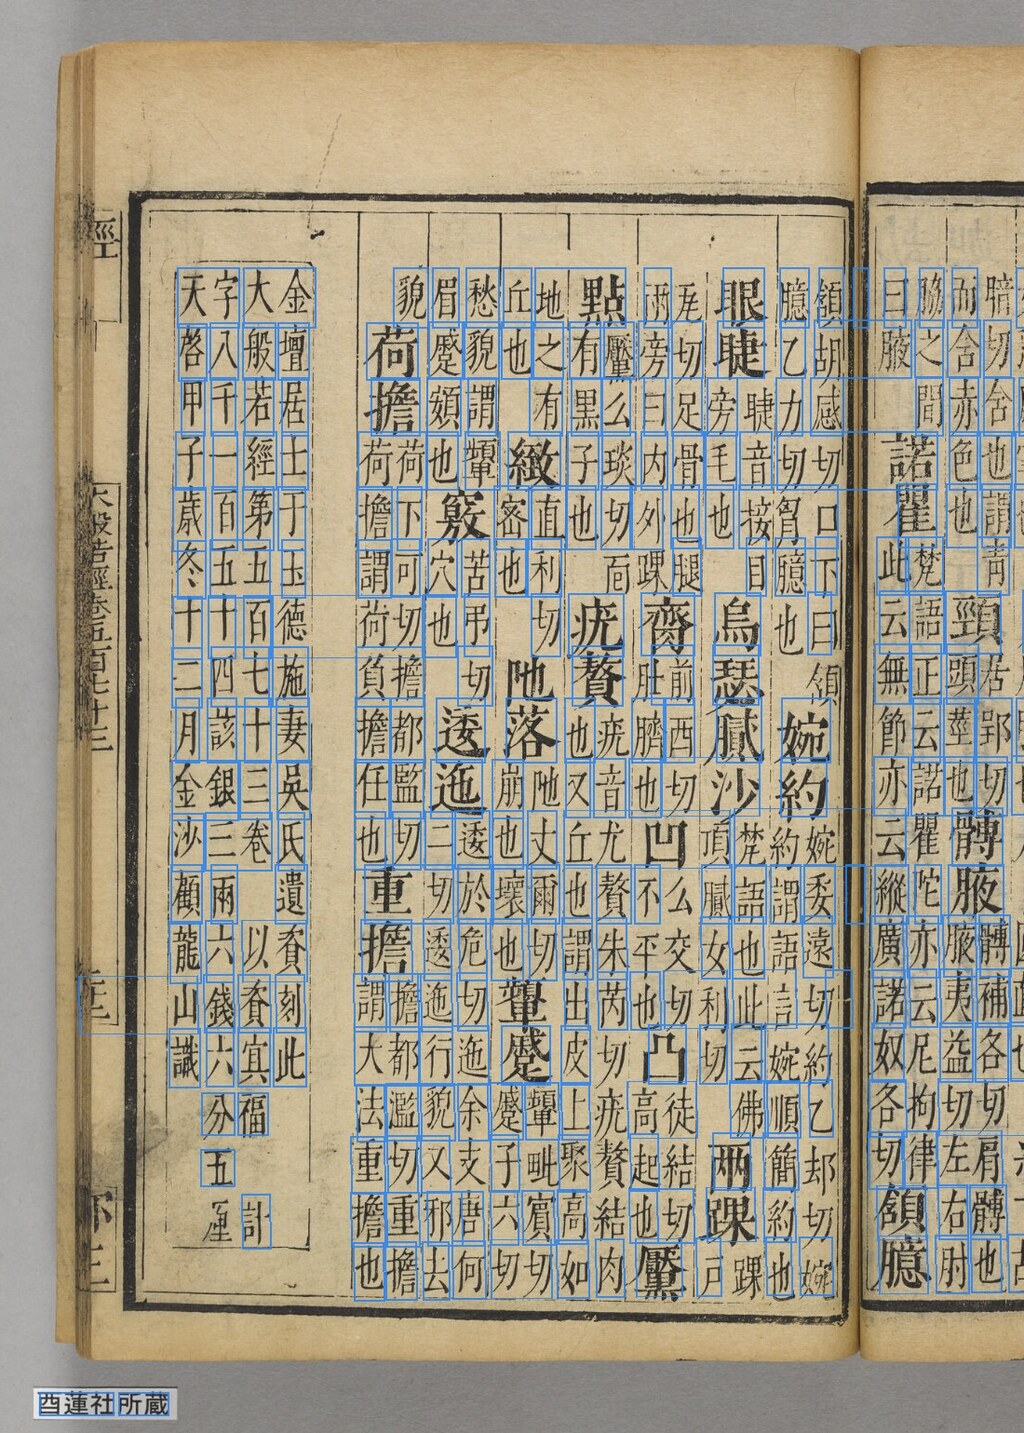 腤切舍也謂青
而舍赤色也
頸
居郢切
頭莖也
髆腋
髆補各切肩髆也
腋夷益切左右肘
脇之間
曰腋
諾瞿
梵語正云諾瞿陀亦云尼拘律
此云無節亦云縱廣諾奴各切
頷臆
頷胡感切口下曰頷
臆乙力切胷臆也
婉約
婉委遠切約乙却切婉
約謂語言婉順簡約也
眼睫
睫音接目
旁毛也
烏瑟膩沙
梵語也此云佛
頂膩女利切
兩踝
踝
戶
瓦切足骨也腿
兩旁曰内外踝
齊
前西切
肚臍也
凹
么交切
不平也
凸
徒結切
高起也
黶
點
黶么琰切面
有黑子也
疣贅
疣音尤贅朱芮切疣贅結肉
也又丘也謂出皮上聚高如
地之有
丘也
緻
直利切
密也
阤落
阤丈爾切
崩也壞也
顰蹙
顰毗賓切
蹙子六切
愁貌謂顰
眉蹙頞也
竅
苦弔切
穴也
逶迤
逶於危切迤余支唐何
二切逶迤行貌又邪去
貌
荷擔
荷下可切擔都監切
荷擔謂荷負擔任也
重擔
擔都濫切重擔
謂大法重擔也
金壇居士于玉德施妻吳氏遺資刻此
大般若經第五百七十三卷 以資冥福 計
字八千一百五十四該銀三兩六錢六分五厘
天啓甲子歲冬十二月金沙顧龍山識
經
大般若經卷五百七十三
酉蓮社所蔵